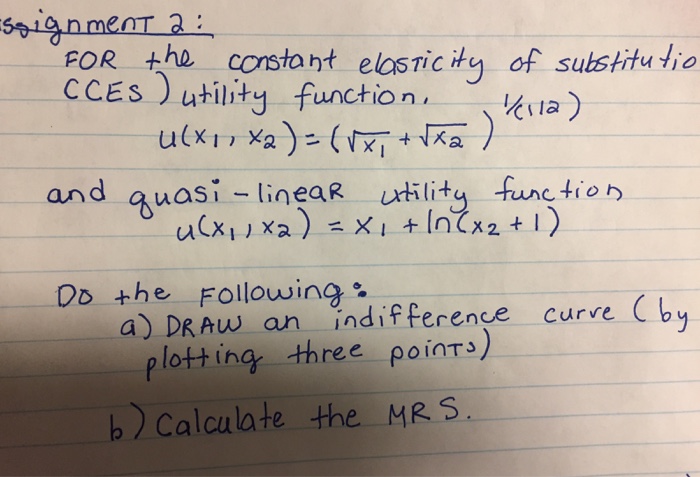 ssignment 2:
FOR the constant elasticity of substitutio
CCES) utility function.
u(x₁, x₂) = (√x₁ + √x₂)^1/(1/2)
and quasi-linear utility function
u(x₁, x₂) = x₁ + ln(x₂ + 1)
DO the Following:
a) DRAW an indifference curve (by
plotting three points)
b) Calculate the MRS.